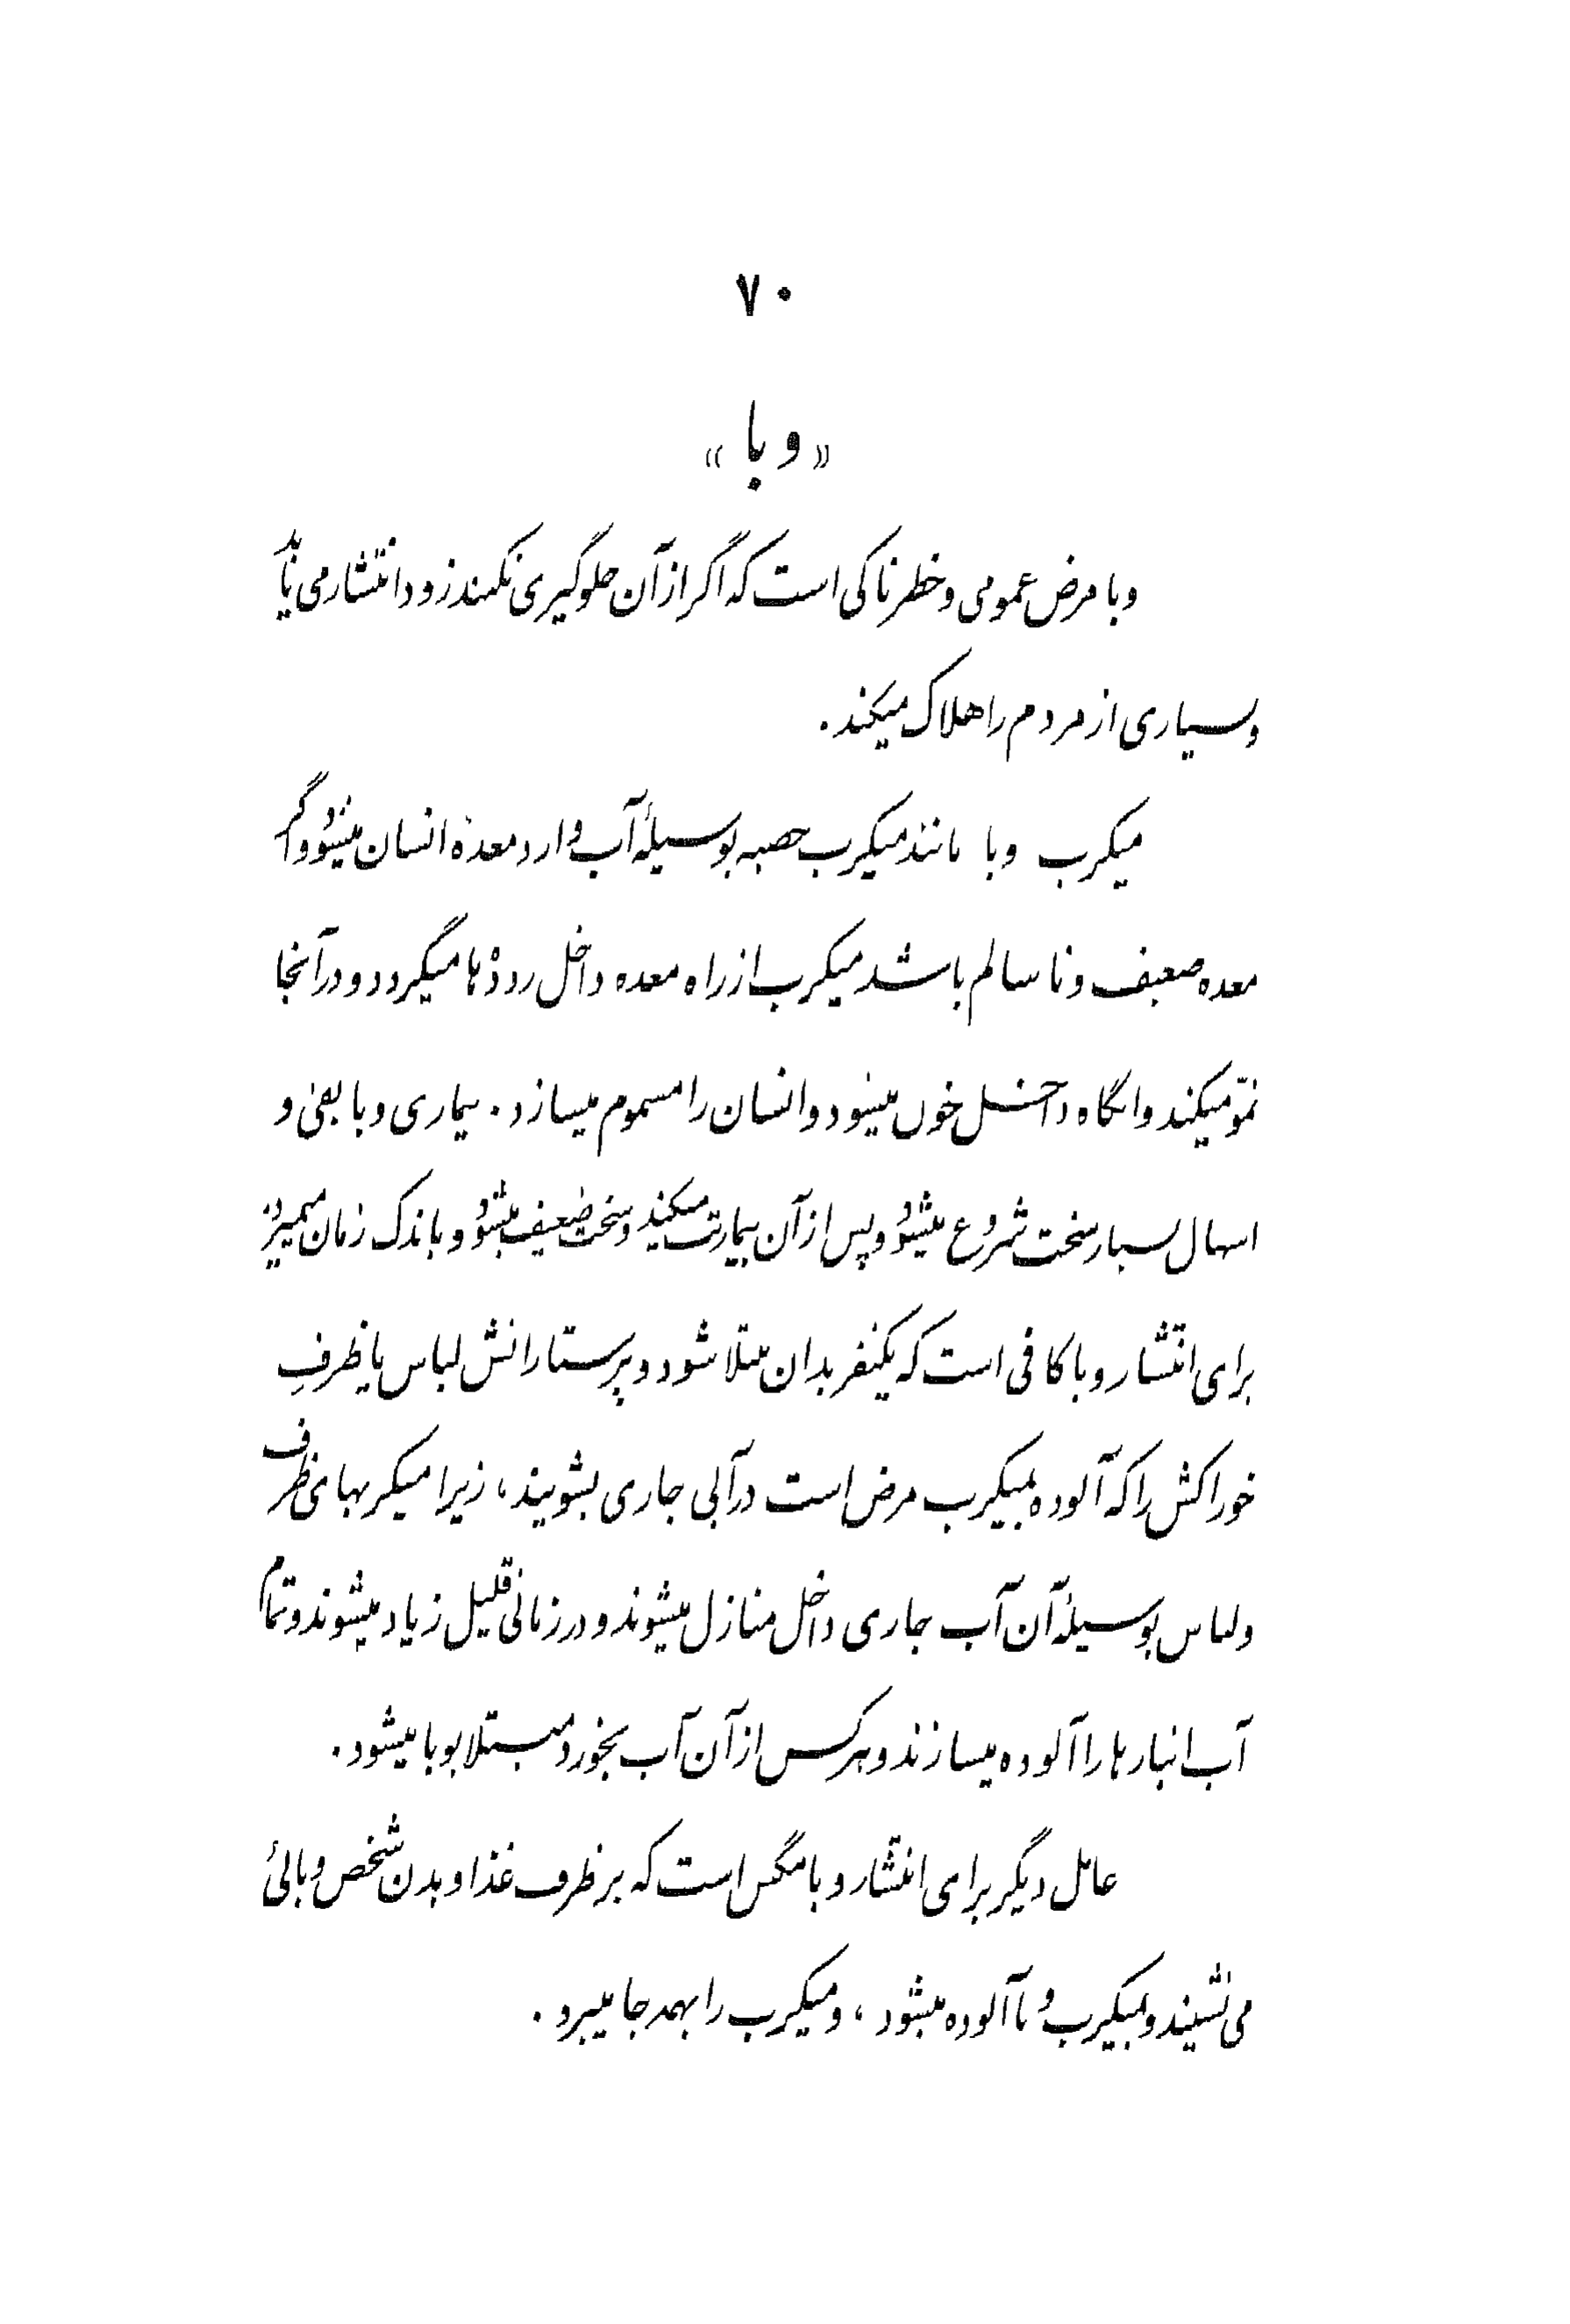 ۷۰
«وبا»
وبا مرض عمومی و خطرناکی است که اگر از آن جلوگیری نکنند زود انتشار می یابد
وبسیاری از مردم را هلاک میکند.
میکرب وبا مانند میکرب حصبه بوسیلهٔ آب وارد معدهٔ انسان میشود و اگر
معده ضعیف و ناسالم باشد میکرب از راه معده داخل رودهٔ‌ها میگردد و در آنجا
نموّ میکند و انگاه داخل خون میشود و انسان را مسموم میسازد. بیماری وبا بقی و
اسهال بسیار سخت شروع میشود و پس از آن بیمار تب میکند و سخت ضعیف میشود و باندک زمان میمیرد.
برای انتشار وبا کافی است که یکنفر بدان مبتلا شود و پرستارانش لباس یا ظرفِ
خوراکش را که آلوده بمیکرب مرض است در آبی جاری بشویند، زیرا میکربهای ظرف
و لباس بوسیلهٔ آن آب جاری داخل منازل میشوند و در زمانی قلیل زیاد میشوند و تمام
آب انبارها را آلوده میسازند و هرکس از آن آب بخورد مبتلا بوبا میشود.
عامل دیگر برای انتشار وبا مگس است که بر ظرف غذا و بدن شخص وبائی
می نشیند و بمیکرب وبا آلوده میشود، و میکرب را بهمه جا میبرد.